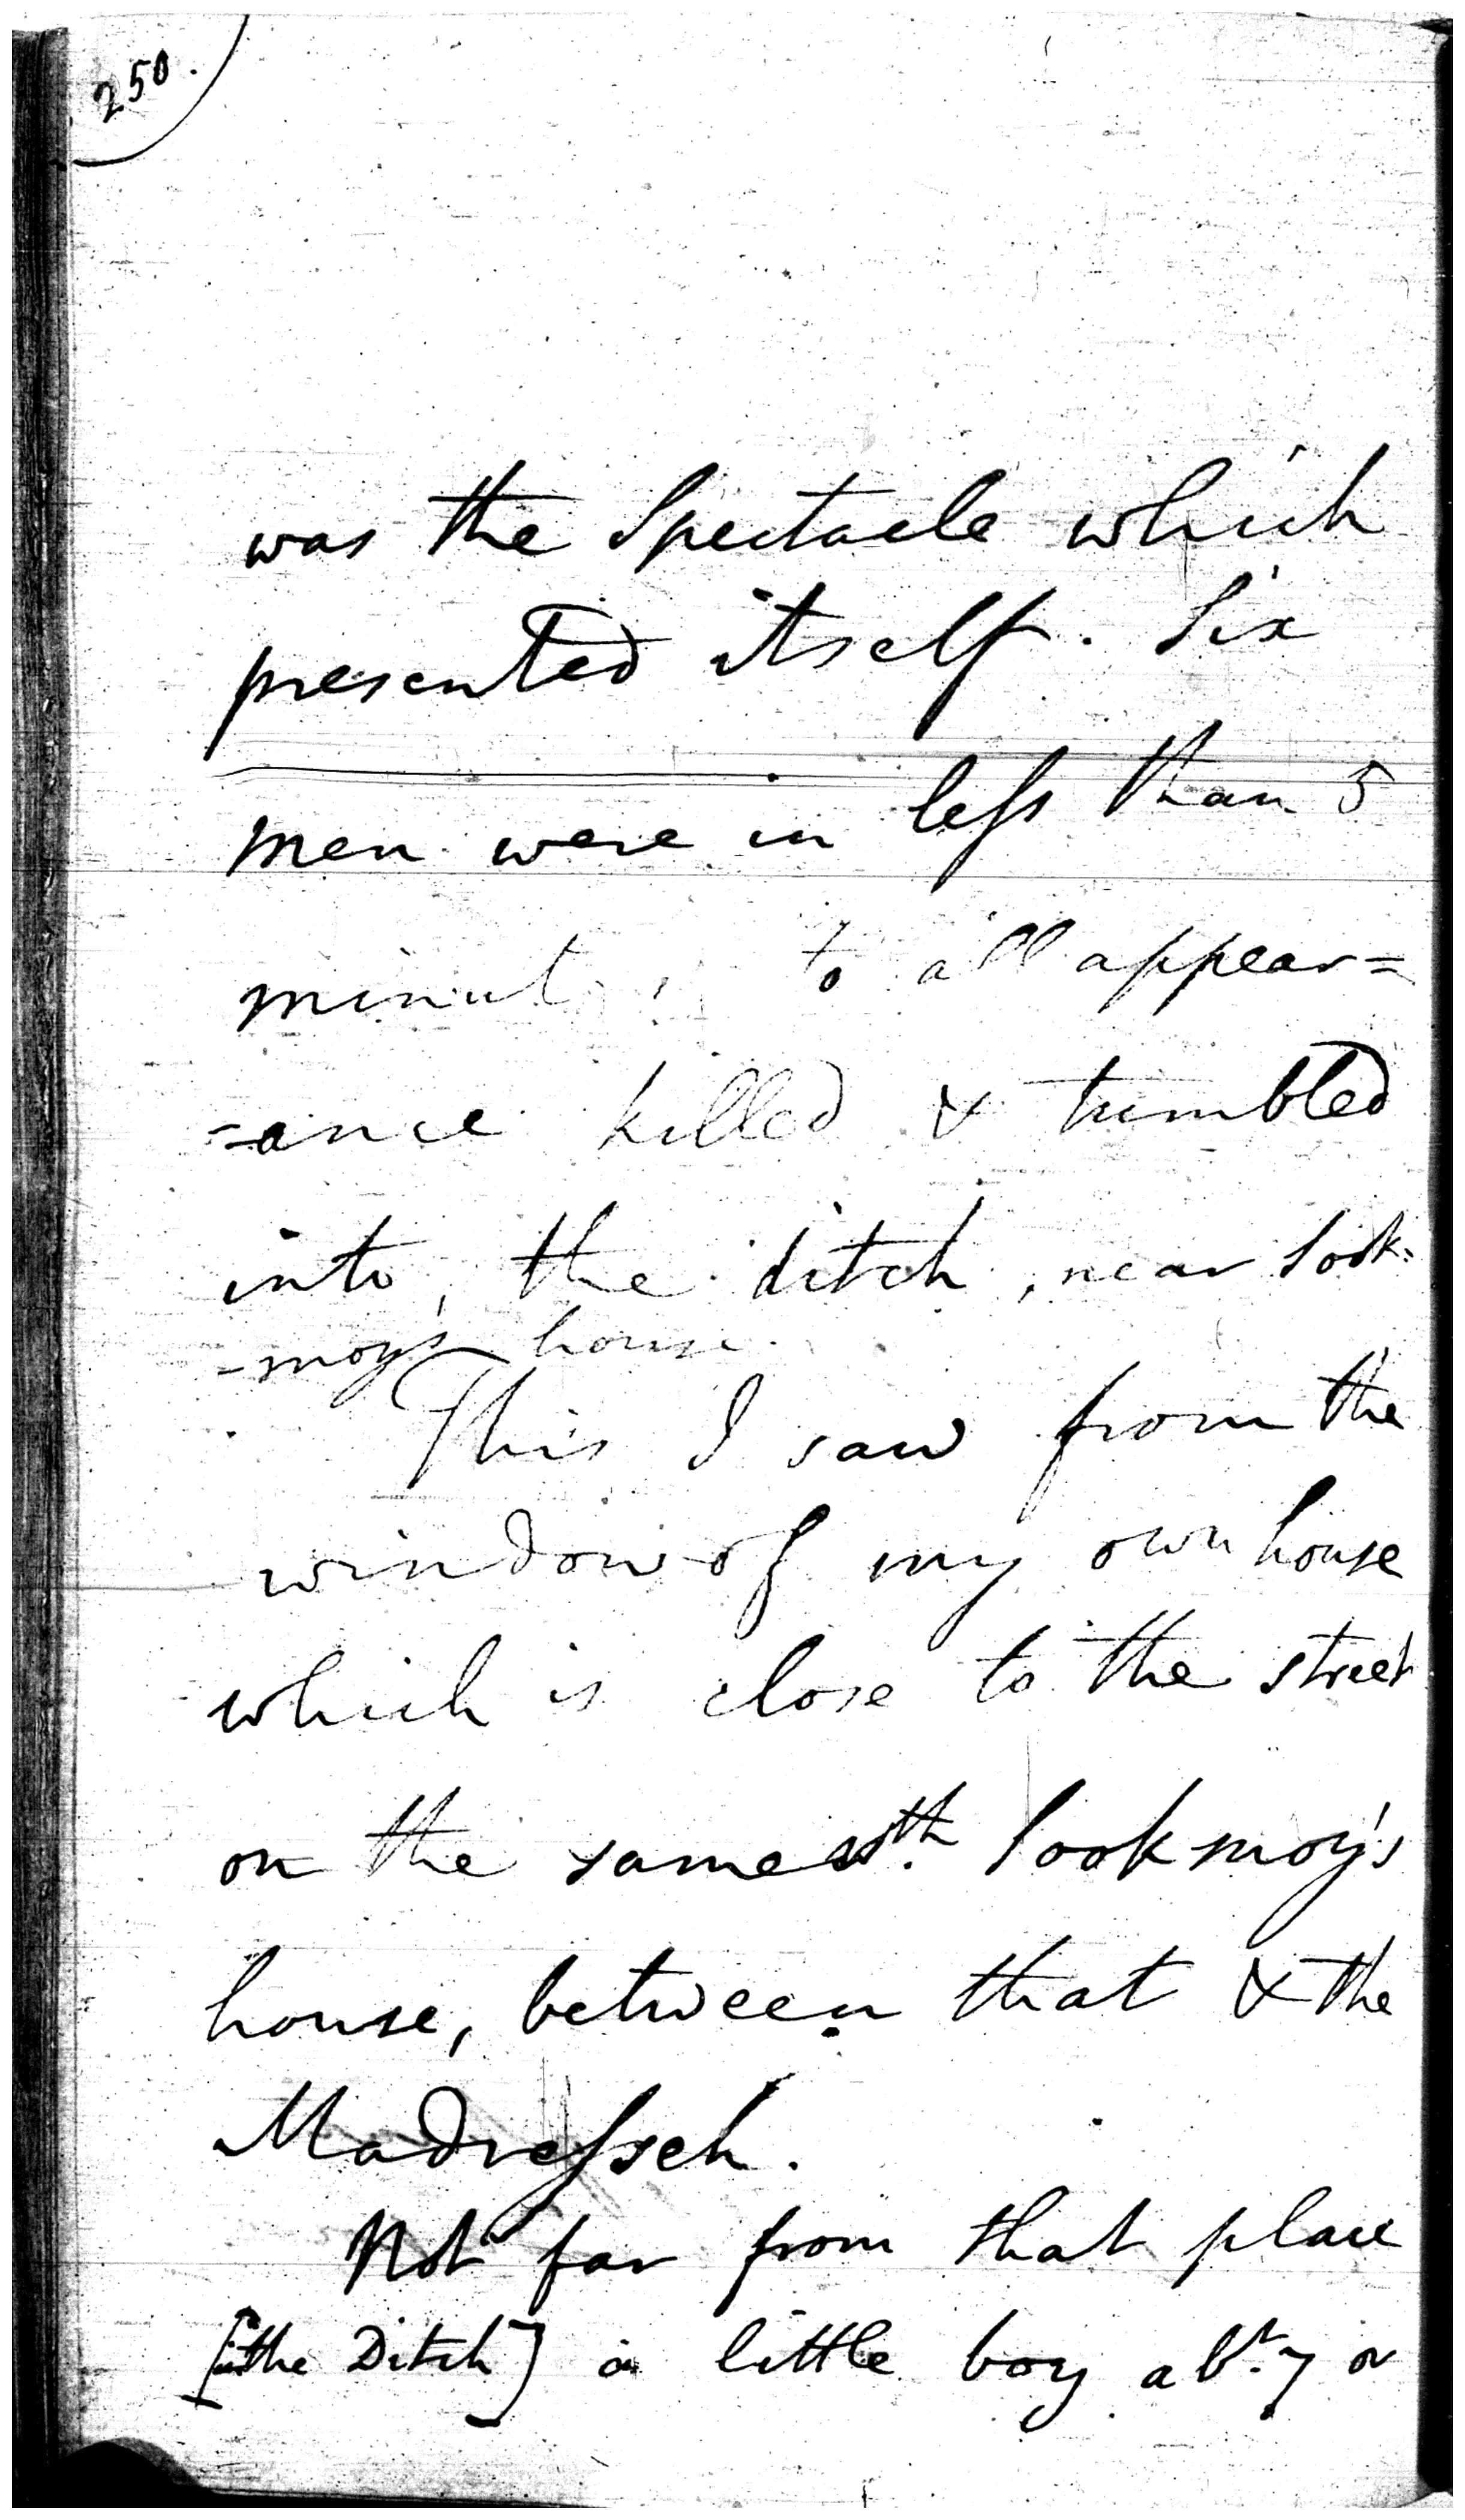 250.
was the Spectacle which
presented itself. Six
men were in less than 5
minut to all appear=
=ance killed & tumbled
into, the ditch, near Sook=
=moy's house.
This I saw from the
window of my own house
which is close to the street
on the same wth. Sookmoy's
house, between that & the
Madresseh.
Not far from that place
[the Ditch] a little boy abt. 7 or